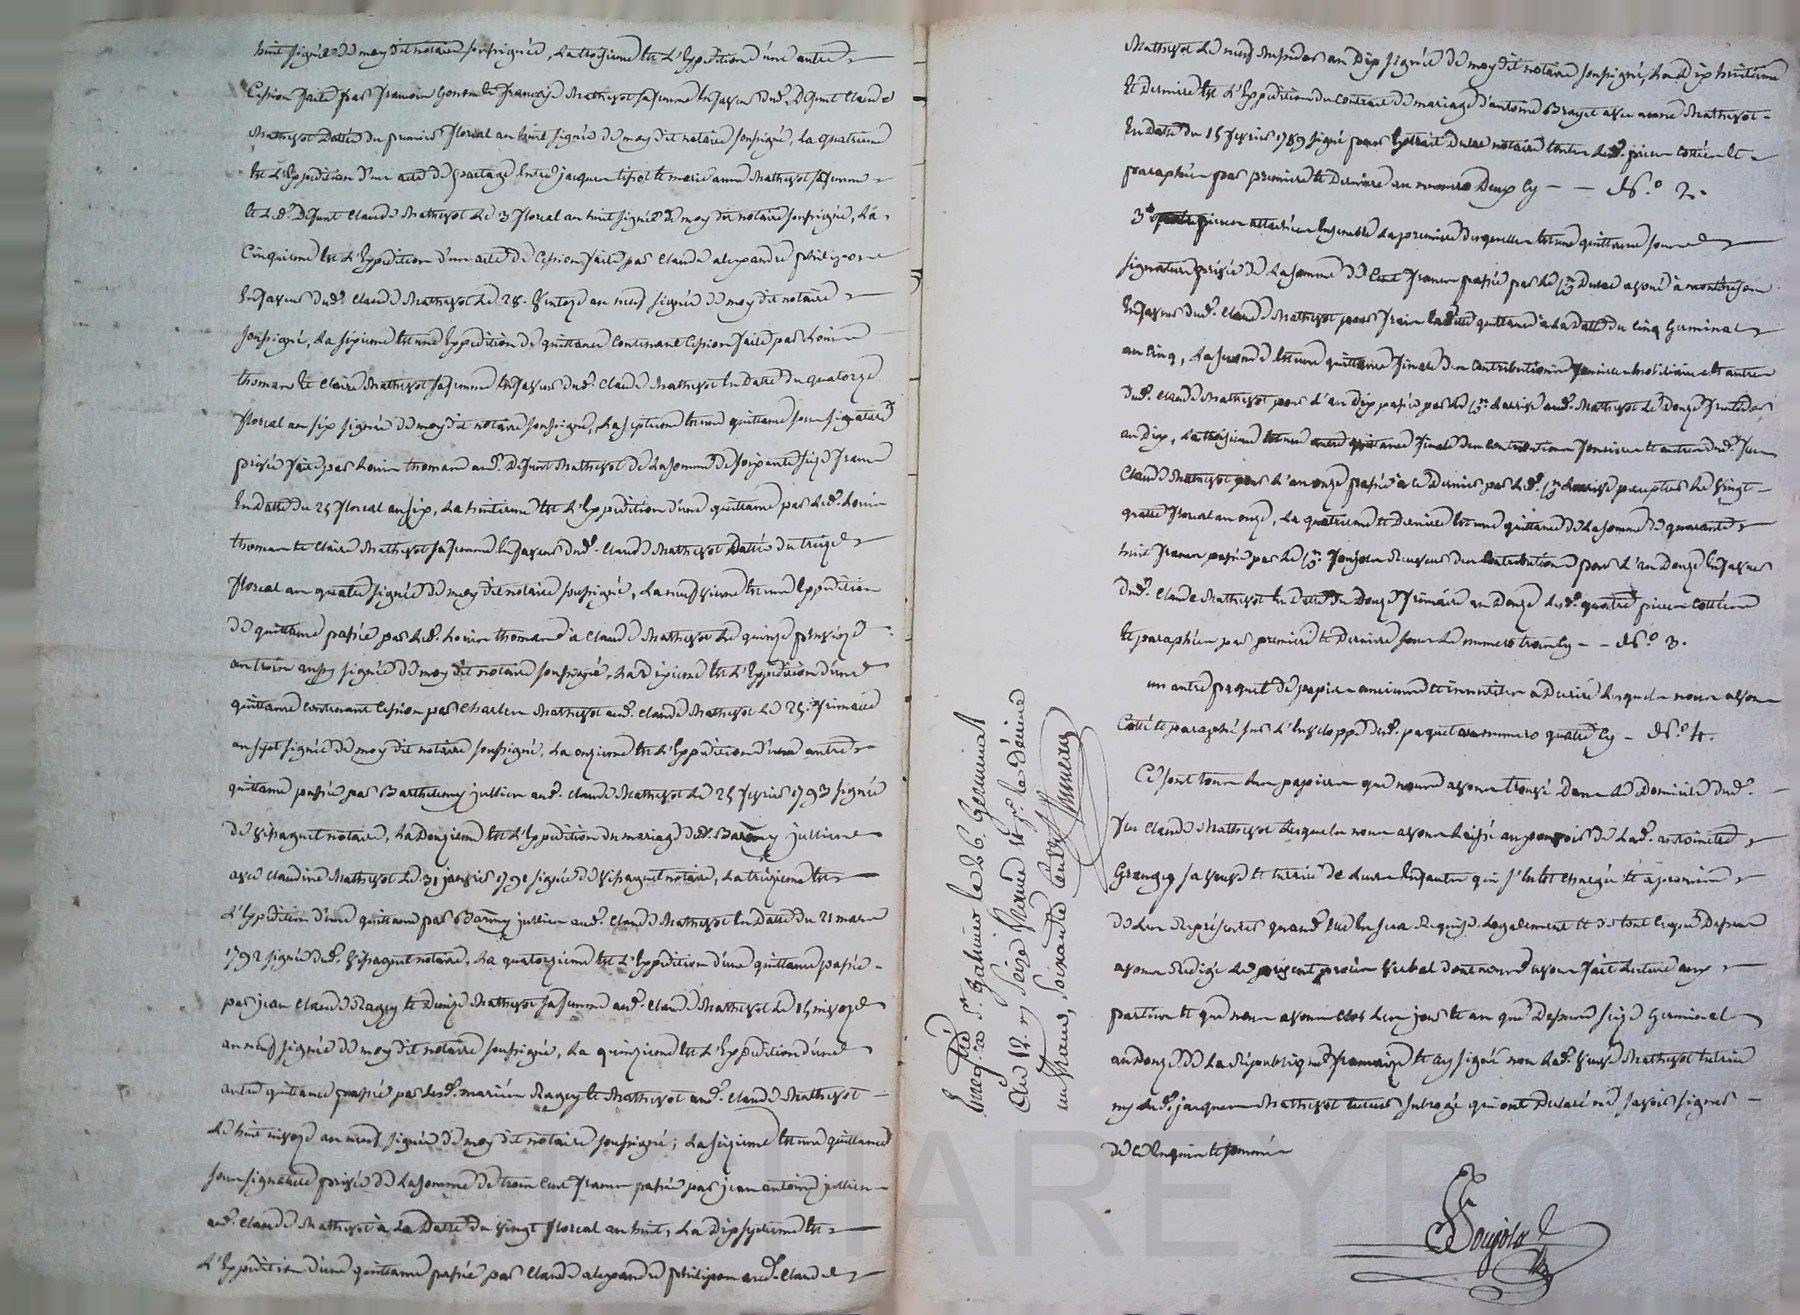 huit signée de moy dit notaire soussignée, La troisieme Est L'Expedition d'une autre
Cession faite par francois Gonon et francoise Mathevot sa femme En faveur dud. Defunt Claude
Mathevot Dattée du premier floreal an huit signée de moy dit notaire soussigné, La quatrieme
Est L'Expedition d'un acte de partage Entre jacques et marie anne Mathevot sa femme
et Led. Defunt Claude Mathevot Le 3 floreal an huit signée de moy dit notaire soussigné, La
Cinquieme Est L'Expedition d'un acte de Cession faite par Claude alexandre philipon
En faveur dud. Claude Mathevot Le 28. Ventoze an neuf signée de moy dit notaire
soussigné, La sixieme Est une Expedition de quittance Contenant Cession faite par Louis
thomas et Claire Mathevot sa femme En faveur dud. Claude Mathevot En Datte du quatorze
floreal an six signée de moy dit notaire soussigné, La septieme Est une quittance sous signature
privée faite par Louis thomas aud. Defunt Mathevot de La somme de soixante seize francs
En Datte du 25 floreal an six, La huitieme Est L'Expedition d'une quittance par Led. Louis
thomas et Claire Mathevot sa femme En faveur dud. Claude Mathevot Dattée du treize
floreal an quatre signée de moy dit notaire soussigné, La neufvieme Est une Expedition
de quittance passée par Led. Louis thomas a Claude Mathevot Le quinze pluvioze
an trois aussy signée de moy dit notaire soussigné, La dixieme Est L'Expedition d'une
quittance Contenant Cession par Charles Mathevot aud. Claude Mathevot Le 25. frimaire
an sept signée de moy dit notaire soussigné, La onzieme Est L'Expedition d'une autre
quittance passée par Barthelemy jullien aud. Claude Mathevot Le 25 fevrier 1793 signée
de notaire, La Douzieme Est L'Expedition du mariage dud. Barmy jullien
avec Claudine Mathevot Le 31 janvier 1791 signée de notaire, La treizieme Est
L'Expedition d'une quittance par Barmy jullien aud. Claude Mathevot En Datte du 21 mars
1792 signée dud. notaire, La quatorzieme Est L'Expedition d'une quittance passée
par jean Claude Ragey et Denize Mathevot sa femme aud. Claude Mathevot Le 18 nivoze
an neuf signée de moy dit notaire soussigné, La quinzieme Est L'Expedition d'une
autre quittance passée par Lesd. mariés Ragey et Mathevot aud. Claude Mathevot
Le huit nivoze an neuf signée de moy dit notaire soussigné; La seizieme Est une quittance
sous signature privée de La somme de trois Cent francs passée par jean antoine jullien
aud. Claude Mathevot a La Datte du vingt floreal an huit, La Dix septieme Est
L'Expedition d'une quittance passée par Claude alexandre philipon aud. Claude
Mathevot Le neuf messidor an Dix signée de moy dit notaire soussigné, La Dix huitieme
Et Derniere Est L'Expedition du Contrat de mariage d'antoine avec anne Mathevot
En Datte du 15 fevrier 1789 signé pour Extrait notaire toutes Lesd. pieces Cottées Et
paraphées par premiere Et Derniere au numero Deux Cy - - N.o 2.
3.e pieces attachées Ensemble La premiere Desquelles Est une quittance sous
signature privée de La somme de Cent francs passée par Le Cn avoué a montbrison
En faveur dud. Claude Mathevot pour frais Ladite quittance a La Datte du Cinq Germinal
an Cinq, La seconde Est une quittance finale des Contributions foncieres mobiliaires Et autres
dud. Claude Mathevot pour L'an Dix passée par Le Cn aud. Mathevot Le Douze fructidor
an Dix, La troisieme Est une autre quittance finale des Contributions foncieres et autres dud. feu
Claude Mathevot pour L'an onze passée a ce Dernier par Led. Cn percepteur Le vingt
quatre floreal an onze, La quatrieme Et Derniere Est une quittance de La somme de quarante
huit francs passée par Le Cn Receveur des Contributions pour L'an Douze En faveur
dud. Claude Mathevot En Datte du Douze frimaire an Douze Lesd. quatre pieces Cottées
Et paraphées par premiere Et Derniere sous Le numero trois Cy - - N.o 3.
un autre paquet de papiers anciens Et inutiles a Decrire Lesquels nous avons
Cotté Et paraphé sur L'Enveloppe dud. paquet au numero quatre Cy - N.o 4.
Ce sont tous Les papiers que nous avons trouvé Dans Le Domicile dud.
feu Claude Mathevot Lesquels nous avons Laissé au pouvoir de Lad. antoinette
Grangey sa veuve Et tutrice de Leurs Enfants qui s'En Est Chargée Et a promis
de Les Représenter quand Elle En sera Requise Legalement Et de tout ce que Dessus
avons Redigé Le present procès verbal dont nous avons fait Lecture aux
parties Et que nous avons Clos Les jour Et an que Dessus seize Germinal
an Douze de La Republique francaise Et ay signé non Lad. veuve Mathevot tutrice
ny Led. jacques Mathevot tuteur subrogé qui ont Declaré ne savoir signer
de ce Enquis Et sommés
Enreg.tré a St. Galmier le 26. germinal
an 12. rj seize francs
un franc, soixante
CHAREYRON